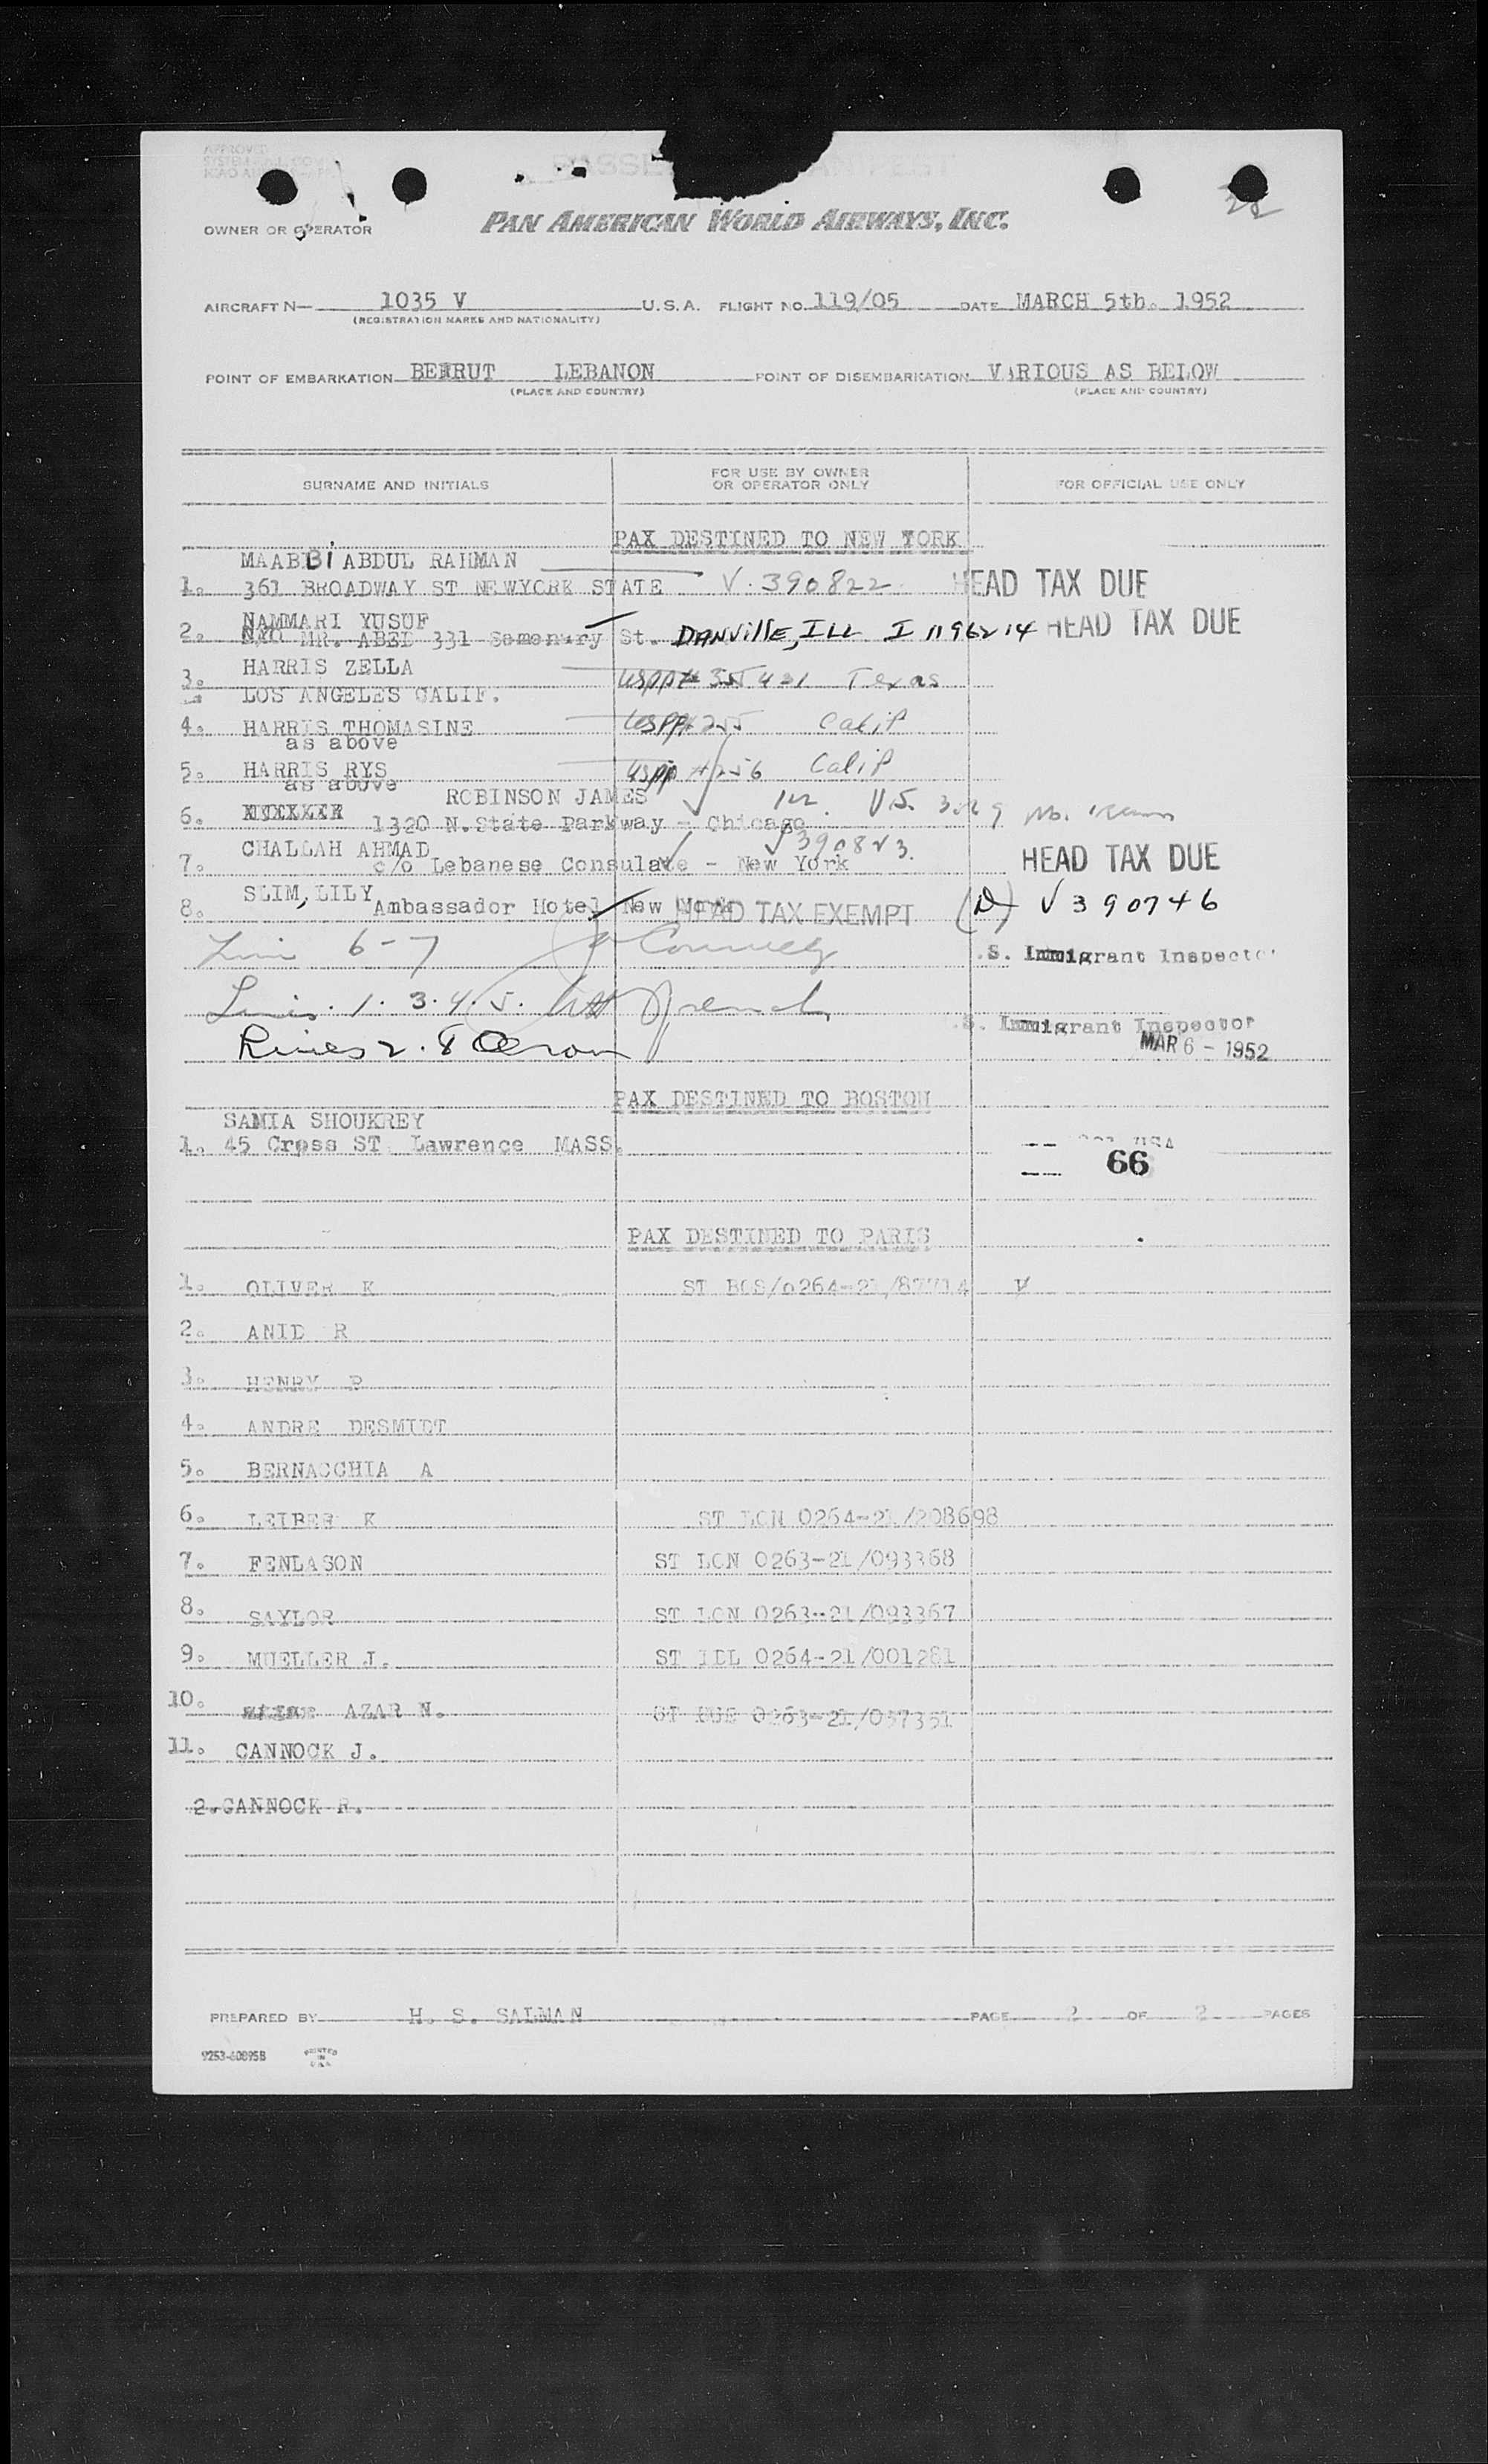 APPROVED
PASSE ANIFEST
28
OWNER OR OPERATOR PAN AMERICAN WORLD AIRWAYS, INC.
AIRCRAFT N— 1035 V U.S.A. FLIGHT NO. 119/05 DATE MARCH 5th. 1952
(REGISTRATION MARKS AND NATIONALITY)
POINT OF EMBARKATION BEIRUT LEBANON POINT OF DISEMBARKATION VARIOUS AS BELOW
(PLACE AND COUNTRY) (PLACE AND COUNTRY)
SURNAME AND INITIALS FOR USE BY OWNER OR OPERATOR ONLY FOR OFFICIAL USE ONLY
PAX DESTINED TO NEW YORK
MAABBi ABDUL RAHMAN
1. 361 BROADWAY ST NEWYORK STATE V. 390822 HEAD TAX DUE
NAMMARI YUSUF
2. MR. ABED 331 St. DANVillE, ILL I 1196214 HEAD TAX DUE
HARRIS ZELLA
3. uspp# Texas
LOS ANGELES CALIF.
4. HARRIS THOMASINE uspp# 255 Calif
as above
5. HARRIS RYS uspp #256 Calif
as above
ROBINSON JAMES
6. 1320 N.State Parkway - Chicago
CHALLAH AHMAD V390823.
7. c/o Lebanese Consulate - New York HEAD TAX DUE
SLIM, LILY
8. Ambassador Hotel New York HEAD TAX EXEMPT (D) V390746
6-7 J Connelly .S. Immigrant Inspector
Lines. 1. 3. 4. 5. French
.S. Immigrant Inspector
Lines 2. 8 MAR 6 - 1952
PAX DESTINED TO BOSTON
SAMIA SHOUKREY
1. 45 Cross ST. Lawrence MASS.
USA
66
PAX DESTINED TO PARIS
1. OLIVER K ST BOS/0264-21/87714 V
2. ANID R
3. HENRY P
4. ANDRE DESMIDT
5. BERNACCHIA A
6. LEIBER K ST LON 0264-21/208698
7. FENLASON ST LON 0263-21/093368
8. SAYLOR ST LON 0263-21/093367
9. MUELLER J. ST IDL 0264-21/001281
10. AZAR N. 0263-21/057351
11. CANNOCK J.
2. CANNOCK R.
PREPARED BY H. S. SALMAN PAGE 2 OF 2 PAGES
9253-60895B PRINTED IN U.S.A.